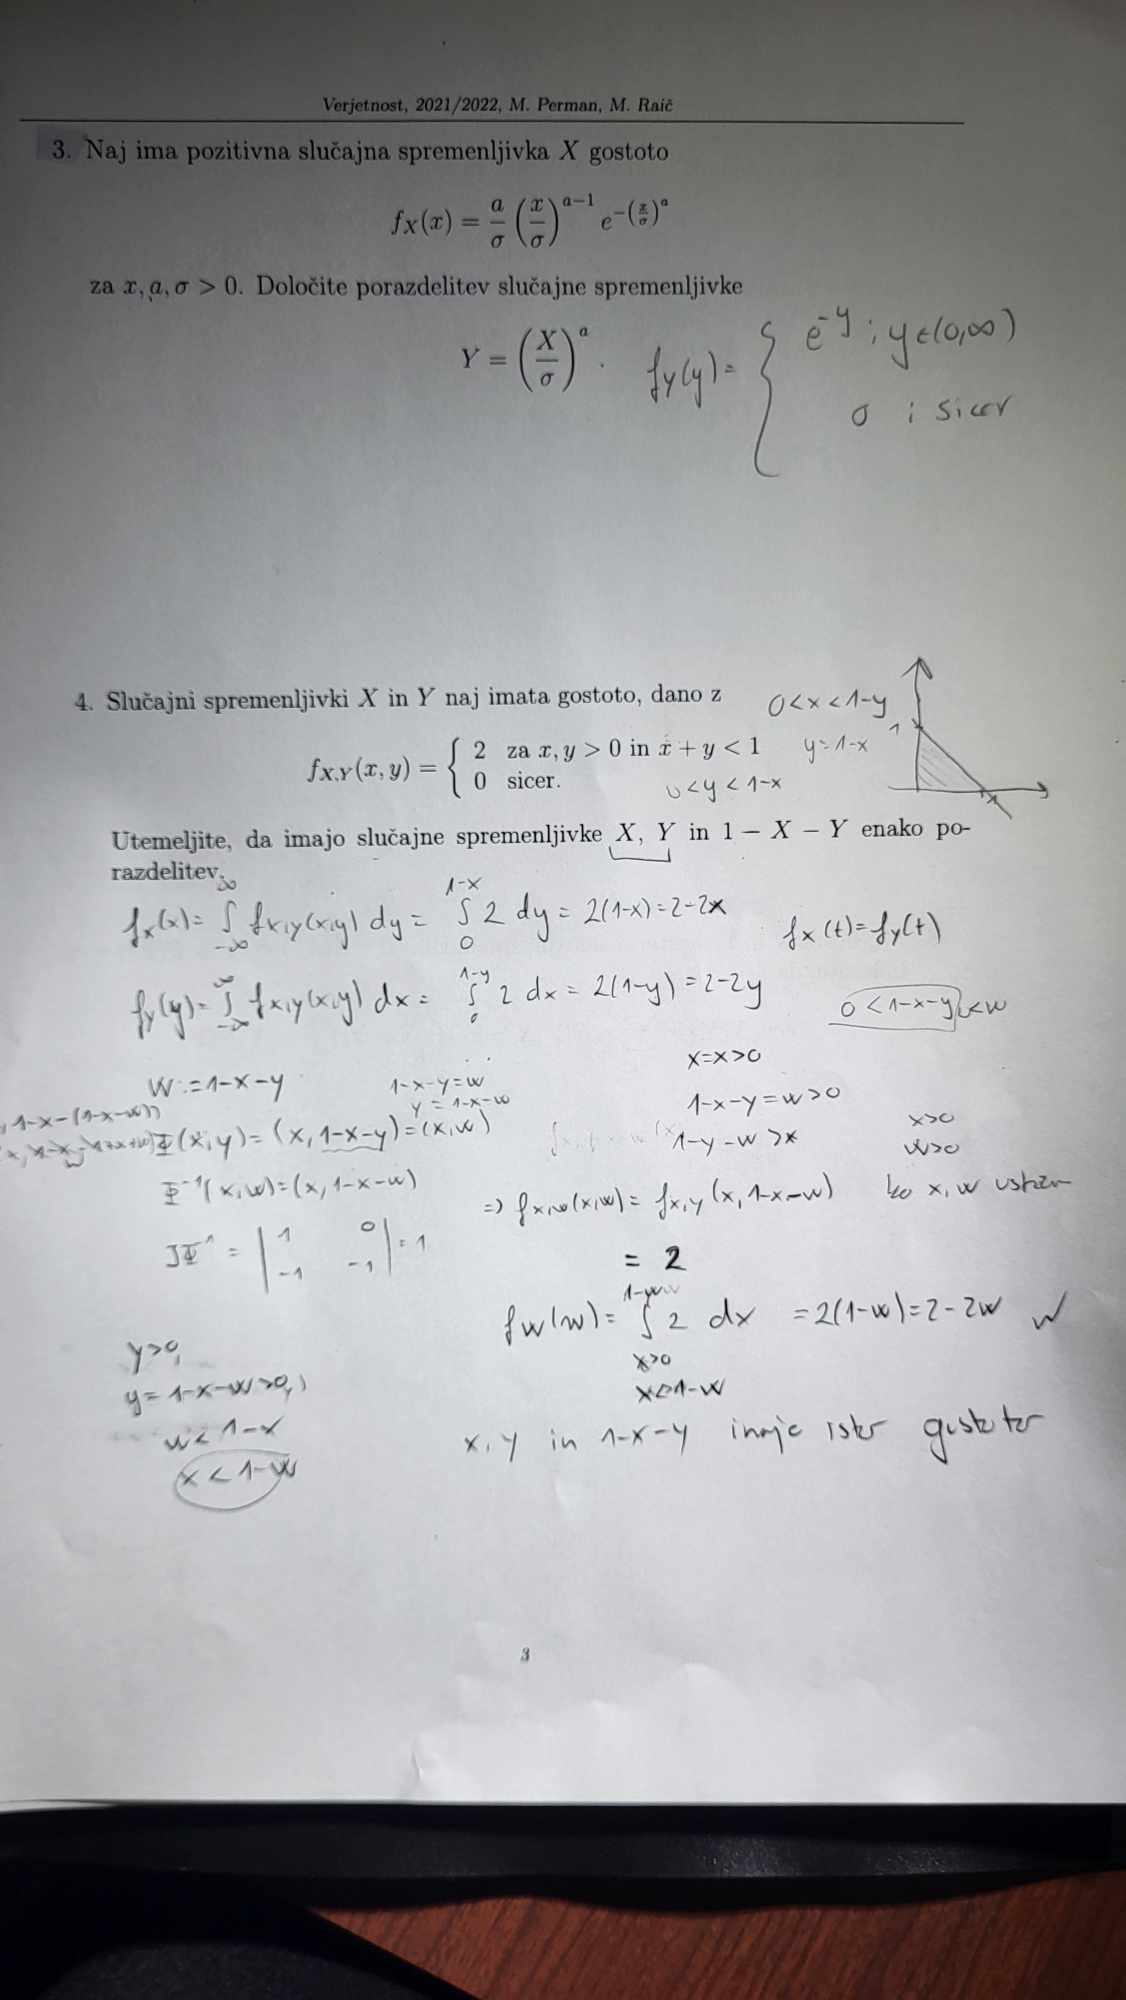 Verjetnost, 2021/2022, M. Perman, M. Raič
3. Naj ima pozitivna slučajna spremenljivka X gostoto
f_X(x) = a/σ (x/σ)^(a−1) e^(−(x/σ)^a)
za x, a, σ > 0. Določite porazdelitev slučajne spremenljivke
Y = (X/σ)^a . f_Y(y) = { e^(-y) ; y ∈ (0,∞)
0 ; sicer
4. Slučajni spremenljivki X in Y naj imata gostoto, dano z
0 < x < 1-y
f_{X,Y}(x, y) = { 2 za x, y > 0 in x + y < 1
0 sicer.
y = 1-x
0 < y < 1-x
1
1
Utemeljite, da imajo slučajne spremenljivke X, Y in 1 − X − Y enako po-
razdelitev.
f_X(x) = ∫_{-∞}^{∞} f_{X,Y}(x,y) dy = ∫_0^{1-x} 2 dy = 2(1-x) = 2-2x
f_X(t) = f_Y(t)
f_Y(y) = ∫_{-∞}^{∞} f_{X,Y}(x,y) dx = ∫_0^{1-y} 2 dx = 2(1-y) = 2-2y
0 < 1-x-y < w
W := 1-x-y
1-x-y = w
y = 1-x-w
x = x > 0
1-x-y = w > 0
1-y-w > x
x > 0
w > 0
, 1-x-(1-x-w))
Φ(x,y) = (x, 1-x-y) = (x,w)
Φ^-1(x,w) = (x, 1-x-w)
=> f_{X,W}(x,w) = f_{X,Y}(x, 1-x-w) ko x, w
JΦ^-1 = | 1 0 | = 1
| -1 -1 |
= 2
f_W(w) = ∫ 2 dx = 2(1-w) = 2-2w
x > 0
x < 1-w
y > 0,
y = 1-x-w > 0,
w < 1-x
x < 1-w
x, y in 1-x-y imajo isto gostoto
3